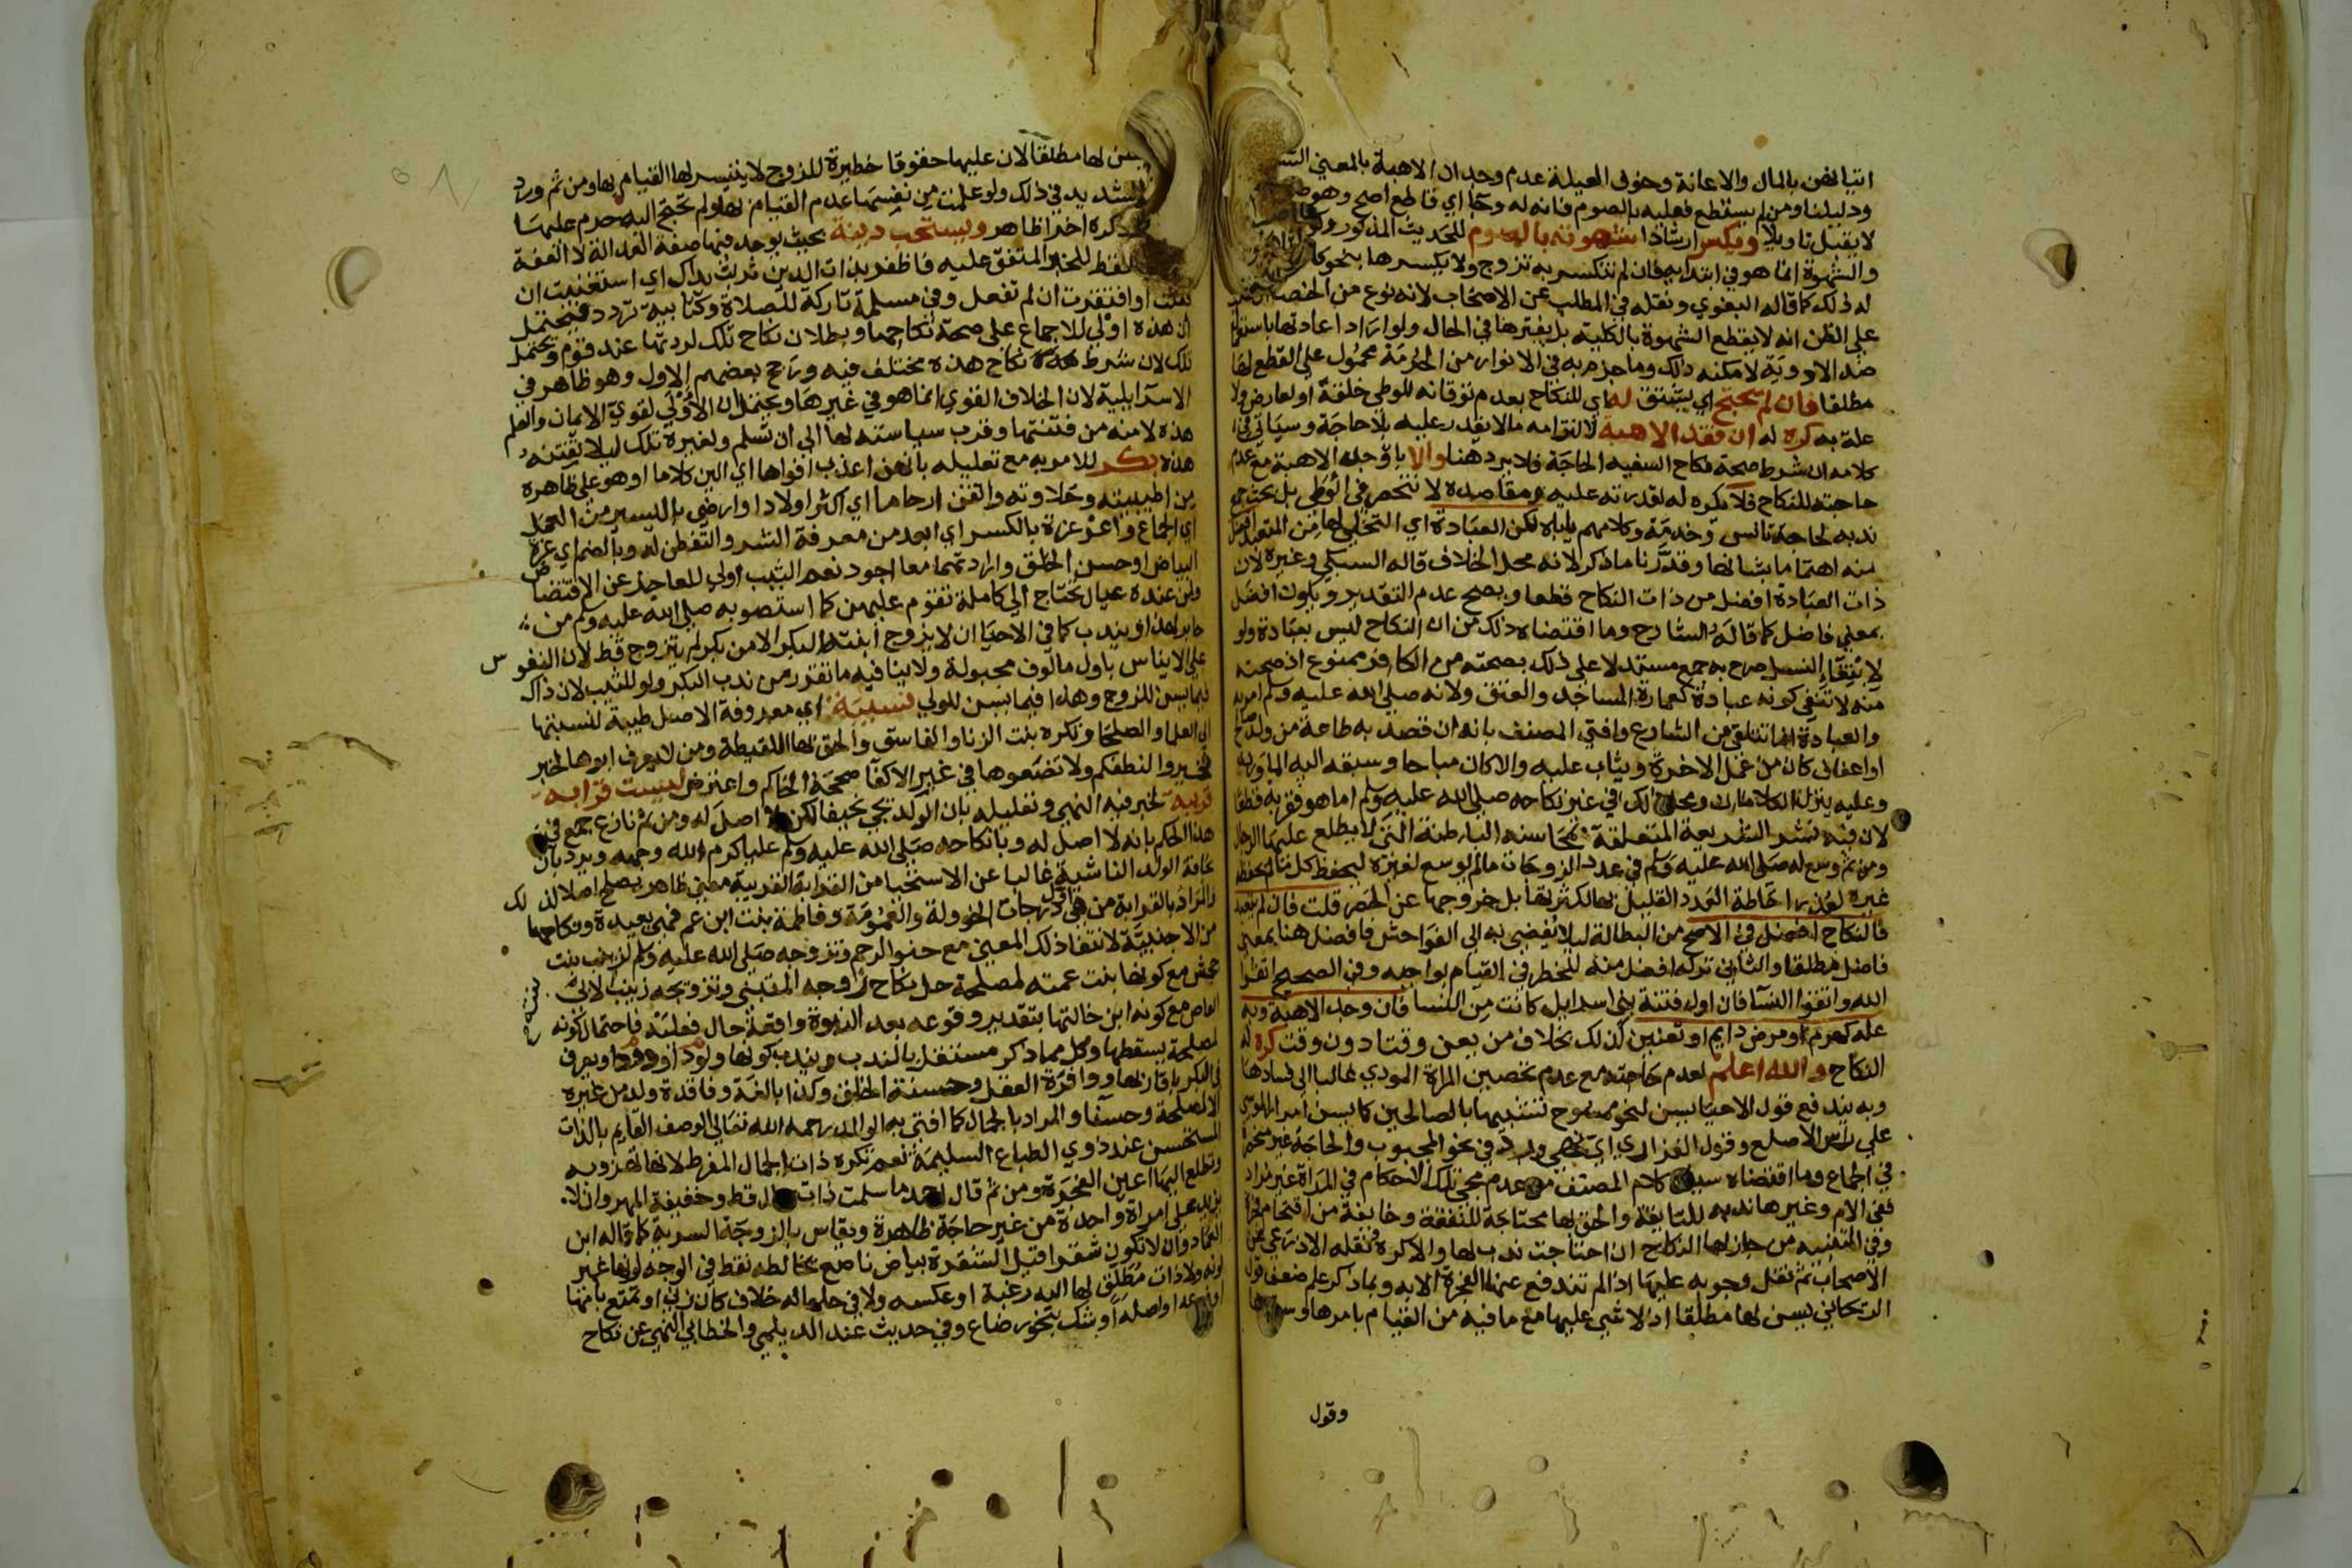 اتيانهن بالمال والاعانة وخوف العيلة عدم وجدان الاهبة بالمعنى
ودليلنا ومن لم يستطع فعليه بالصوم فانه له وجا اي قاطع اصح وهو
لا يقبل تاويلا ويكسر ارشادا شهوته بالصوم للحديث المذكور
والشهوة انما هو في ابتدايه فان لم تنكسر به تزوج ولا يكسرها بنحو
له ذلك كما قاله البغوي ونقله في المطلب عن الاصحاب لانه نوع من الخصا
على الظن انه لا يقطع الشهوة بالكلية بل يفترها في الحال ولو اراد اعادتها باستعمال
ضد الادوية لامكنه ذلك وما جزم به في الانوار من الحرمة محمول على القطع لها
مطلقا فان لم يحتج اي يتق له اي للنكاح بعدم توقانه للوطى خلقة او لعارض ولا
علة به كره له ان فقد الاهبة لالتزامه ما لا يقدر عليه بلا حاجة وسياتي في
كلامه ان شرط صحة نكاح السفيه الحاجة فلا يرد هنا والا بان وجد الاهبة مع عدم
حاجته للنكاح فلا يكره له لقدرته عليه ومقاصده لا تنحصر في الوطى بل بحث جمع
ندبه لحاجة تانس وخدمة وكلامهم ياباه لكن العبادة اي التخلي لها من المتعبد افضل
منه اهتماما بشانها وقدرنا ما ذكر لانه محل الخلاف قاله السبكي وغيره لان
ذات العبادة افضل من ذات النكاح قطعا ويصح عدم التقدير ويكون افضل
بمعنى فاضل كما قاله الشارح وما اقتضاه ذلك من ان النكاح ليس بعبادة ولو
لابتغاء النسل صرح به جمع مستدلا على ذلك بصحته من الكافر ممنوع اذ صحته
منه لا تنفي كونه عبادة كعمارة المساجد والعتق ولانه صلى الله عليه وسلم امر به
والعبادة انما تتلقى من الشارع وافتى المصنف بانه ان قصد به طاعة من ولد صالح
او اعفاف كان من عمل الاخرة ويثاب عليه والا كان مباحا وسبقه اليه الماوردي
وعليه ينزل الكلامان ومحل ذلك في غير نكاحه صلى الله عليه وسلم اما هو فقربة قطعا
لان فيه نشر الشريعة المتعلقة بمحاسنه الباطنة التي لا يطلع عليها الرجال
ومن ثم وسع له صلى الله عليه وسلم في عدد الزوجات ما لم يوسع لغيره ليحفظ كل ما لم يحفظه
غيره لعذر احاطة العدد القليل بها لكثرتها بل خروجها عن الحصر قلت فان لم يتعبد
فالنكاح افضل في الاصح من البطالة ليلا تفضي به الى الفواحش فافضل هنا بمعنى
فاضل مطلقا والثاني تركه افضل منه للخطر في القيام بواجبه وفي الصحيح اتقوا
الله واتقوا النسا فان اول فتنة بني اسرايل كانت من النسا فان وجد الاهبة وبه
علة كهرم او مرض دايم او تعنين كذلك بخلاف من يعن وقتا دون وقت كره له
النكاح والله اعلم لعدم حاجته مع عدم تحصين المراة المودي غالبا الى فسادها
وبه يندفع قول الاحيا يسن لنحو ممسوح تشبيها بالصالحين كما يسن امرار الموسى
على راس الاصلع وقول الفزاري اي نهي ورد في نحو المجبوب والحاجة غير منحصرة
في الجماع وما اقتضاه سياق كلام المصنف من عدم مجي تلك الاحكام في المراة غير مراد
ففي الام وغيرها ندبه للتايقة والحق بها محتاجة للنفقة وخايفة من اقتحام فجرة
وفي التنبيه من جاز لها النكاح ان احتاجت ندب لها والا كره ونقله الاذرعي عن
الاصحاب ثم نقل وجوبه عليها اذا لم تندفع عنها الفجرة الا به وبما ذكر علم ضعف قول
الزنجاني يسن لها مطلقا اذ لا شي عليها مع ما فيه من القيام بامرها وسترها
وقول
يسن لها مطلقا لان عليها حقوقا خطيرة للزوج لا يتيسر لها القيام بها ومن ثم ورد
الشديد في ذلك ولو علمت من نفسها عدم القيام بها ولم تحتج اليه حرم عليها
ذكره اخرا ظاهر ويستحب دينة بحيث يوجد فيها صفة العدالة لا العفة
فقط للخبر المتفق عليه فاظفر بذات الدين تربت يداك اي استغنيت ان
فعلت او افتقرت ان لم تفعل وفي مسلمة تاركة للصلاة وكتابية تردد فيحتمل
ان هذه اولى للاجماع على صحة نكاحها وبطلان نكاح تلك لردتها عند قوم ويحتمل
تلك لان شرط نكاح هذه مختلف فيه ورجح بعضهم الاول وهو ظاهر في
الاسرايلية لان الخلاف القوي انما هو في غيرها ويحتمل ان الاولى لقوي الايمان والعلم
هذه لامنه من فتنتها وقرب سياسته لها الى ان تسلم ولغيره تلك ليلا تفتنه
هذه بكر للامر به مع تعليله بانهن اعذب افواها اي الين كلاما او هو على ظاهره
من اطيبيته وحلاوته وانتق ارحاما اي اكثر اولادا وارضى باليسير من العمل
اي الجماع واغر غرة بالكسر اي ابعد من معرفة الشر والتفطن له وبالضم اي غرة
البياض او حسن الخلق وارادتهما معا اجود نعم الثيب اولى للعاجز عن الافتضاض
ولمن عنده عيال يحتاج الى كاملة تقوم عليهن كما استصوبه صلى الله عليه وسلم من
جابر لهذا ويندب كما في الاحيا ان لا يزوج ابنته البكر الا من بكر لم يتزوج قط لان النفوس
على الايناس باول مالوف مجبولة ولا ينافيه ما تقرر من ندب البكر ولو للثيب لان ذاك
فيما يسن للزوج وهذا فيما يسن للولي نسيبة اي معروفة الاصل طيبة لنسبتها
الى العلما والصلحا وتكره بنت الزنا والفاسق والحق بها اللقيطة ومن لا يعرف ابوها لخبر
تخيروا لنطفكم ولا تضعوها في غير الاكفا صححه الحاكم واعترض ليست قرابة
قريبة لخبر فيه النهي وتعليله بان الولد يجي نحيفا لكن لا اصل له ومن ثم نازع جمع في
هذا الحكم بانه لا اصل له وبانكاحه صلى الله عليه وسلم عليا كرم الله وجهه ويرد بان
نحافة الولد الناشية غالبا عن الاستحيا من القرابة القريبة معنى ظاهر يصلح اصلا لذلك
والمراد بالقرابة من هي في اول درجات الخوولة والعمومة وفاطمة بنت ابن عم فهي بعيدة ونكاحها
من الاجنبية لانتفا ذلك المعنى مع حنو الرحم وتزوجه صلى الله عليه وسلم لزينب بنت
جحش مع كونها بنت عمته لمصلحة حل نكاح زوجة المتبنى وتزويجه زينب لابي
العاص مع كونه ابن خالتها بتقدير وقوعه بعد النبوة واقعة حال فعلية فاحتمال كونه
لمصلحة يسقطها وكل مما ذكر مستقل بالندب ويندب كونها ولودا وودودا ويعرف
في البكر باقاربها ووافرة العقل وحسنة الخلق وكذا بالغة وفاقدة ولد من غيره
الا لمصلحة وحسنا والمراد بالجمال كما افتى به الوالد رحمه الله تعالى الوصف القايم بالذات
المستحسن عند ذوي الطباع السليمة نعم تكره ذات الجمال المفرط لانها تزهو به
وتطلع اليها اعين الفجرة ومن ثم قال احمد ما سلمت ذات جمال قط وخفيفة المهر وان لا
يزيد على امراة واحدة من غير حاجة ظاهرة ويقاس بالزوجة السرية كما قاله ابن
العماد وان لا تكون شقرا قيل الشقرة بياض ناصع يخالطه نقط في الوجه لونها غير
لونه ولا ذات مطلق لها اليه رغبة او عكسه ولا في حلها له خلاف كان زنى او تمتع بامها
او فرعه او اصله او شك بنحو رضاع وفي حديث عند الديلمي والخطابي النهي عن نكاح